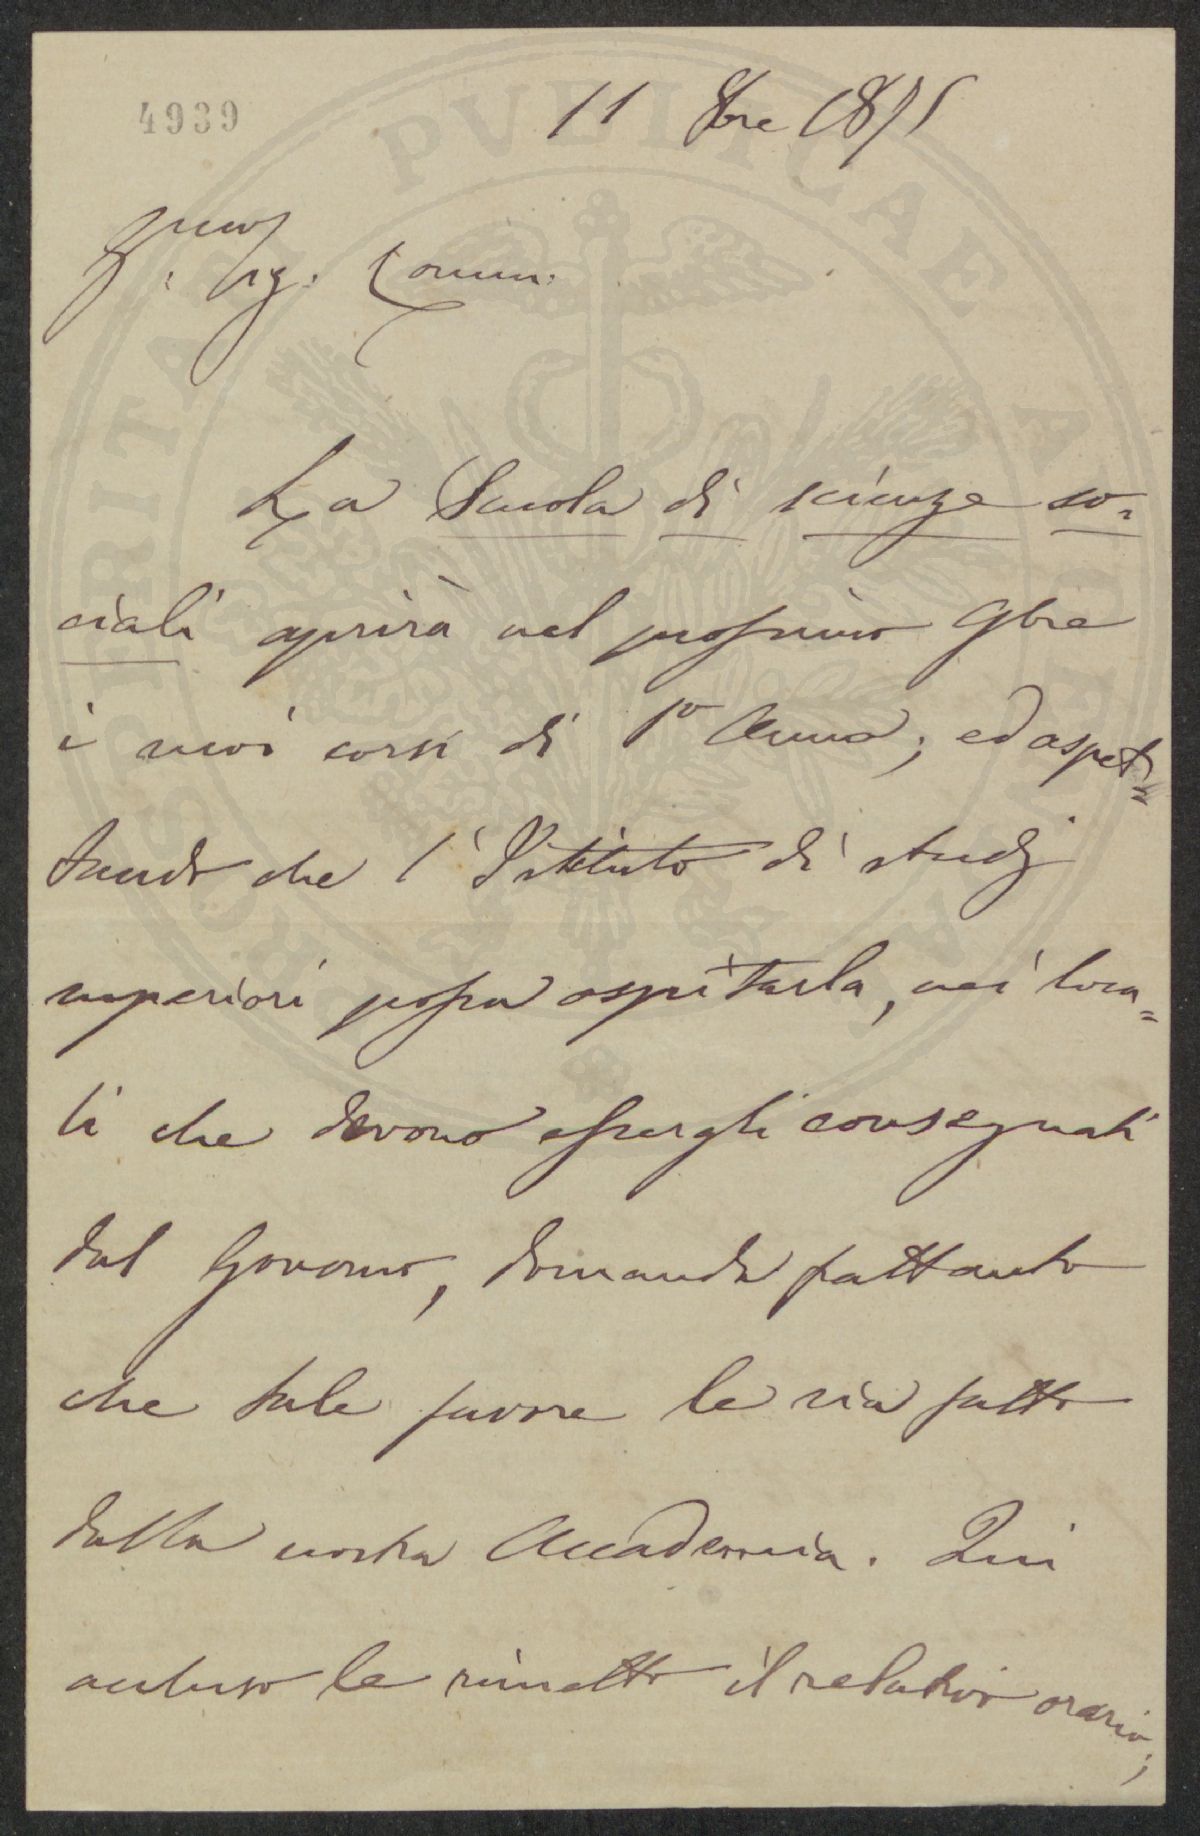 4939
11 8bre 1875
Ill.mo Sig. Comm.
La Scuola di scienze so=
ciali aprirà nel prossimo 9bre
i suoi corsi di 1o Anno; ed aspet=
tando che l'Istituto di studj
superiori possa ospitarla, nei loca=
li che devono essergli consegnati
dal Governo, domanda frattanto
che tale favore le sia fatto
dalla nostra Accademia. Qui
accluso le rimetto il relativo orario;